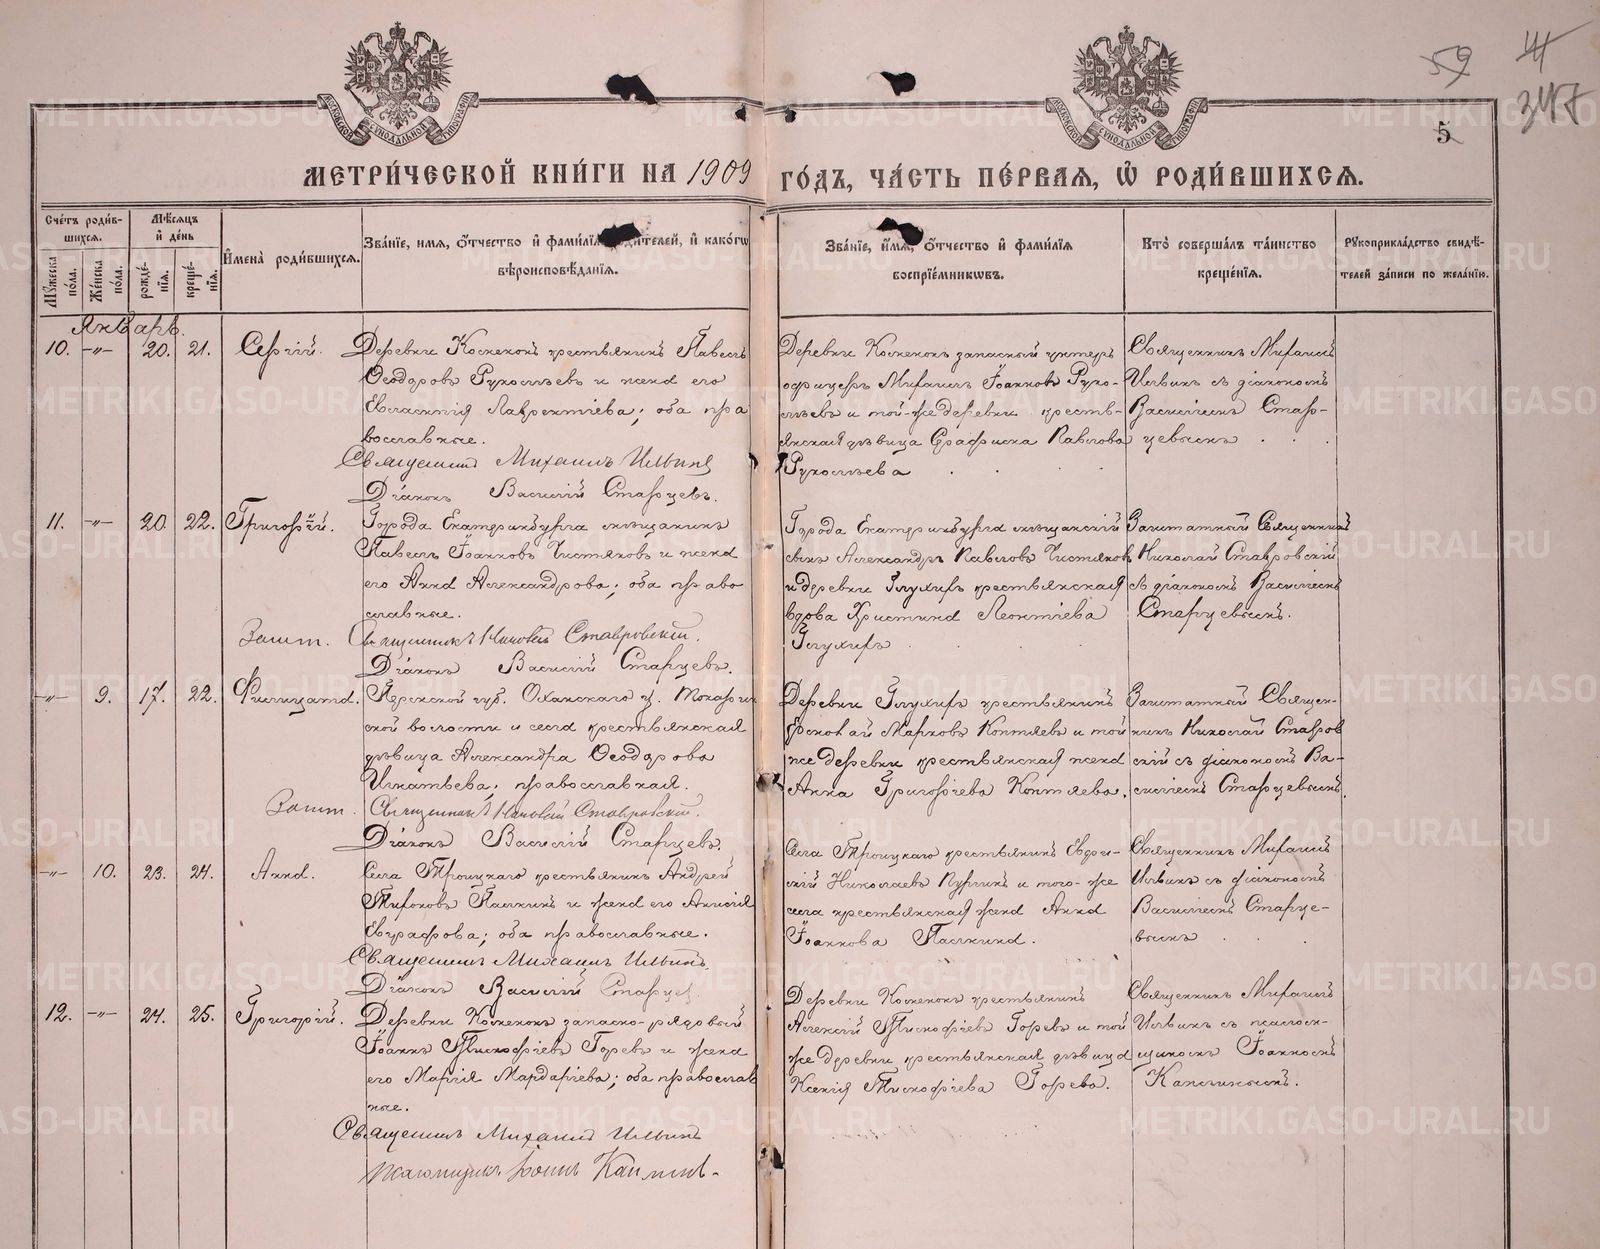 59 Ш
317
5
МОСКОВСКОЙ СѴНОДАЛЬНОЙ ТИПОГРАФІИ
МОСКОВСКОЙ СѴНОДАЛЬНОЙ ТИПОГРАФІИ
МЕТРИ́ЧЕСКОЙ КНИ́ГИ НА 1909 ГО́ДЪ, ЧА́СТЬ ПЕ́РВАѦ, Ѽ РОДИ́ВШИХСѦ.
Сче́тъ роди́в-
шихсѧ.
Мꙋ́жеска по́ла.
Же́нска по́ла.
Мѣ́сѧцъ
и҆ де́нь
рожде́-
нїѧ.
креще́-
нїѧ.
И҆мена̀ роди́вшихсѧ.
Зва́нїе, имѧ, ѻ҆́тчество и҆ фами́лїѧ родителей, и҆ како́гѡ
вѣроисповѣ́данїѧ.
Зва́нїе, и҆́мѧ, ѻ҆́тчество и҆ фами́лїѧ
воспрїе́мникѡвъ.
Кто̀ соверша́лъ та́инство
креще́нїѧ.
Рꙋкоприкла́дство свидѣ́-
телей за́писи по жела́нїю.
Январь.
10. -"- 20. 21. Сергій.
Деревни Космаковъ крестьянинъ Павелъ
Ѳеодоровъ Рукомѣевъ и жена его
Евлампія Лаврентіева; оба пра
вославные.
Священникъ Михаилъ Ильинъ
Діаконъ Василій Старцевъ.
офицеръ Михаилъ Іоанновъ
и той-же деревни крестья-
янская дѣвица Серафима Павлова
Священникъ Михаилъ
Ильинъ съ діакономъ
Василіемъ Стар-
цевымъ
11. -"- 20. 22. Григорій.
Города Екатеринбурга мѣщанинъ
Павелъ Іоанновъ Чистяковъ и жена
его Анна Александрова; оба право
славные.
Зашт. Священникъ Николай Ставровскій.
Діаконъ Василій Старцевъ.
Города Екатеринбурга мѣщанскій
сынъ Александръ Павловъ Чистяковъ
и деревни Глухихъ крестьянская
вдова Христина Леонтіева
Глухихъ
Заштатный Священникъ
Николай Ставровскій
съ діакономъ Василіемъ
Старцевымъ.
-"- 9. 17. 22. Филицата.
Пермской губ. Оханскаго у.
ской волости и села крестьянская
дѣвица Александра Ѳеодорова
Игнатьева; православная.
Зашт. Священникъ Николай Ставровскій.
Діаконъ Василій Старцевъ.
Деревни Глухихъ крестьянинъ
Марковъ Коптяевъ и той
же деревни крестьянская жена
Анна Григоріева Коптяева.
Заштатный Священ-
никъ Николай Ставров
скій съ діакономъ Ва-
силіемъ Старцевымъ.
-"- 10. 23. 24. Анна.
Села Троицкаго крестьянинъ Андрей
Тихоновъ Пашкинъ и жена его Анисія
Евграфова; оба православные.
Священникъ Михаилъ Ильинъ.
Діаконъ Василій Старцев
Села Троицкаго крестьянинъ
Николаевъ и того-же
села крестьянская жена Анна
Іоаннова Пашкина.
Священникъ Михаилъ
Ильинъ съ діакономъ
Василіемъ Старце-
вымъ
12. -"- 24. 25. Григорій.
Деревни Космаковъ запасно-рядовый
Іоаннъ Тимофѣевъ Горевъ и жена
его Марія Мардаріева; оба православ
ные.
Священникъ Михаилъ Ильинъ
Псаломщикъ Іоаннъ Каплинъ.
Деревни Космаковъ крестьянинъ
Алексій Тимофѣевъ Горевъ и той
же деревни крестьянская дѣвица
Ксенія Тимофѣева Горева.
Священникъ Михаилъ
Ильинъ съ псалом-
щикомъ Іоанномъ
Каплинымъ.
METRIKI.GASO-URAL.RU